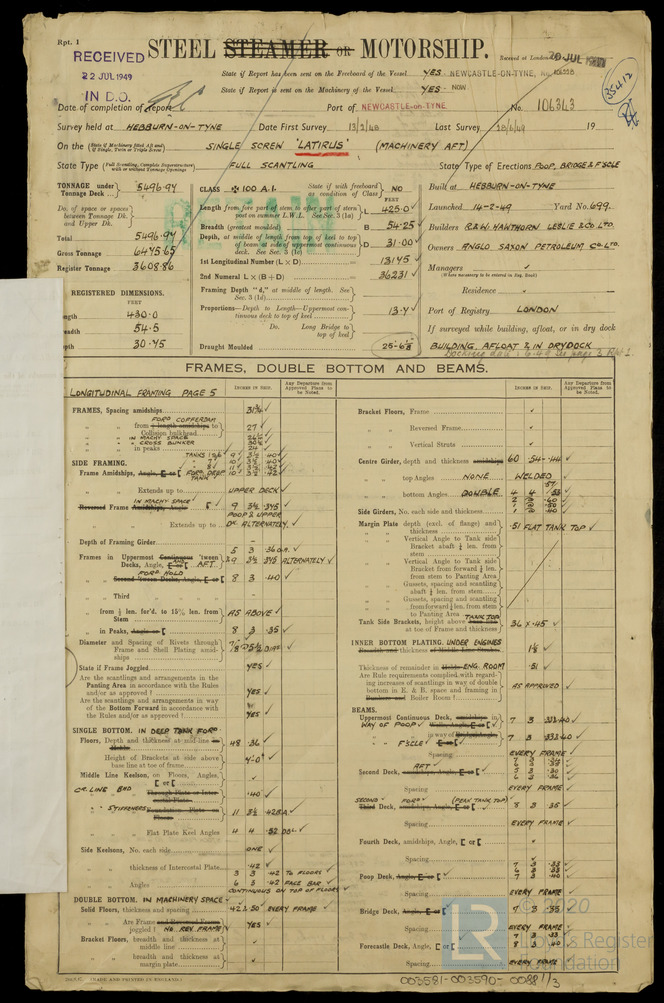 Rpt. 1
RECEIVED
22 JUL 1949
IN D.O.
STEEL STEAMER OR MOTORSHIP.
Received at London 20 JUL
State if Report has been sent on the Freeboard of the Vessel YES NEWCASTLE-ON-TYNE,
State if Report is sent on the Machinery of the Vessel YES - NOW
Date of completion of Report
Port of NEWCASTLE-on-TYNE
No. 106343
Survey held at HEBBURN-ON-TYNE Date First Survey 13/2/48 Last Survey 28/6/49 19
On the SINGLE SCREW "LATIRUS" (MACHINERY AFT)
State Type FULL SCANTLING State Type of Erections POOP, BRIDGE & F'SCLE
TONNAGE under Tonnage Deck 5496.94
Do. of space or spaces between Tonnage Dk. and Upper Dk.
Total 5496.94
Gross Tonnage 6475.65
Register Tonnage 3608.86
REGISTERED DIMENSIONS.
FEET
ngth 430.0
eadth 54.5
pth 30.45
CLASS 100 A.1. State if with freeboard as condition of Class NO
FEET
Length from fore part of stem to after part of stern post on summer L.W.L. See Sec. 3 (1a) L 425.0
Breadth (greatest moulded) B 54.25
Depth, at middle of length from top of keel to top of beam at side of uppermost continuous deck. See Sec. 3 (1c) D 31.00
1st Longitudinal Number (L × D) 13175
2nd Numeral L × (B + D) 36231
Framing Depth "d," at middle of length. See Sec. 3 (1d)
Proportions—Depth to Length—Uppermost continuous deck to top of keel 13.7
Do. Long Bridge to top of keel
Draught Moulded
Built at HEBBURN-ON-TYNE
Launched 14-2-49 Yard No. 699.
Builders R. & W. HAWTHORN LESLIE & CO. LTD.
Owners ANGLO SAXON PETROLEUM CO. LTD.
Managers
(Where necessary to be entered in Reg. Book)
Residence
Port of Registry LONDON
If surveyed while building, afloat, or in dry dock
BUILDING, AFLOAT & IN DRYDOCK
FRAMES, DOUBLE BOTTOM AND BEAMS.
LONGITUDINAL FRAMING PAGE 5
INCHES IN SHIP.
Any Departure from Approved Plans to be Noted.
FRAMES, Spacing amidships
FORD COFFERDAM
from length amidships to Collision bulkhead 27
IN MACHY SPACE
CROSS BUNKER
in peaks 24
SIDE FRAMING.
Frame Amidships, Angle, FORD DEEP TANK
Extends up to UPPER DECK
IN MACHY SPACE
Reversed Frame Amidships, Angle
POOP & UPPER
Extends up to DK. ALTERNATELY.
Depth of Framing Girder
Frames in Uppermost Continuous 'tween Decks, Angle, AFT. ALTERNATELY
FORD HOLD
Second 'tween Decks, Angle, 8 3 .40
Third
from ½ len. for'd. to 15% len. from Stem AS ABOVE
in Peaks, Angle 8 3 .35
Diameter and Spacing of Rivets through Frame and Shell Plating amidships
State if Frame Joggled YES
Are the scantlings and arrangements in the Panting Area in accordance with the Rules and/or as approved? YES
Are the scantlings and arrangements in way of the Bottom Forward in accordance with the Rules and/or as approved? YES
SINGLE BOTTOM. IN DEEP TANK FORD
Floors, Depth and thickness at mid-line 48 .36
Height of Brackets at side above base line at toe of frame
Middle Line Keelson, on Floors, Angles,
CR. LINE BHD Through Plate or Intercostal Plate .40
STIFFENERS Foundation Plate on Floors
Flat Plate Keel Angles 4 4 .52 DBL
Side Keelsons, No. each side ONE
thickness of Intercostal Plate .42
3 3 .42 TO FLOORS
Angles 6 3 .42 FACE BAR
CONTINUOUS ON TOP OF FLOORS
DOUBLE BOTTOM. IN MACHINERY SPACE
Solid Floors, thickness and spacing EVERY FRAME
Are Frame and Reversed Frame joggled? NO REV. FRAME YES
Bracket Floors, breadth and thickness at middle line
breadth and thickness at margin plate
INCHES IN SHIP.
Any Departure from Approved Plans to be Noted.
Bracket Floors, Frame
Reversed Frame
Vertical Struts
Centre Girder, depth and thickness amidships 60 .54-.44
top Angles NONE WELDED
bottom Angles DOUBLE
Side Girders, No. each side and thickness
Margin Plate depth (excl. of flange) and thickness .51 FLAT TANK TOP
Vertical Angle to Tank side Bracket abaft ¼ len. from stem
Vertical Angle to Tank side Bracket from forward ¼ len. from stem to Panting Area
Gussets, spacing and scantling abaft ¼ len. from stem
Gussets, spacing and scantling from forward ¼ len. from stem to Panting Area
Tank Side Brackets, height above TANK TOP at toe of Frame and thickness 36 × .45
INNER BOTTOM PLATING. UNDER ENGINES
Breadth and thickness of Middle Line Strake 1⅛
Thickness of remainder in Holds ENG. ROOM .51
Are Rule requirements complied with regarding increases of scantlings in way of double bottom in E. & B. space and framing in Bunkers and Boiler Room? AS APPROVED
BEAMS.
Uppermost Continuous Deck, amidships in WAY OF POOP
in way of
F'SCLE
Spacing EVERY FRAME
AFT
Second Deck, amidships, Angle,
Spacing EVERY FRAME
SECOND FORD (PEAK TANK TOP)
Third Deck, amidships, Angle, 8 3 .35
Spacing EVERY FRAME
Fourth Deck, amidships, Angle,
Spacing
Poop Deck, Angle,
Spacing EVERY FRAME
Bridge Deck, Angle,
Spacing EVERY FRAME
Forecastle Deck, Angle,
Spacing EVERY FRAME
LR
© 2020
Lloyd's Register
Foundation
003581-003590-0088 1/3